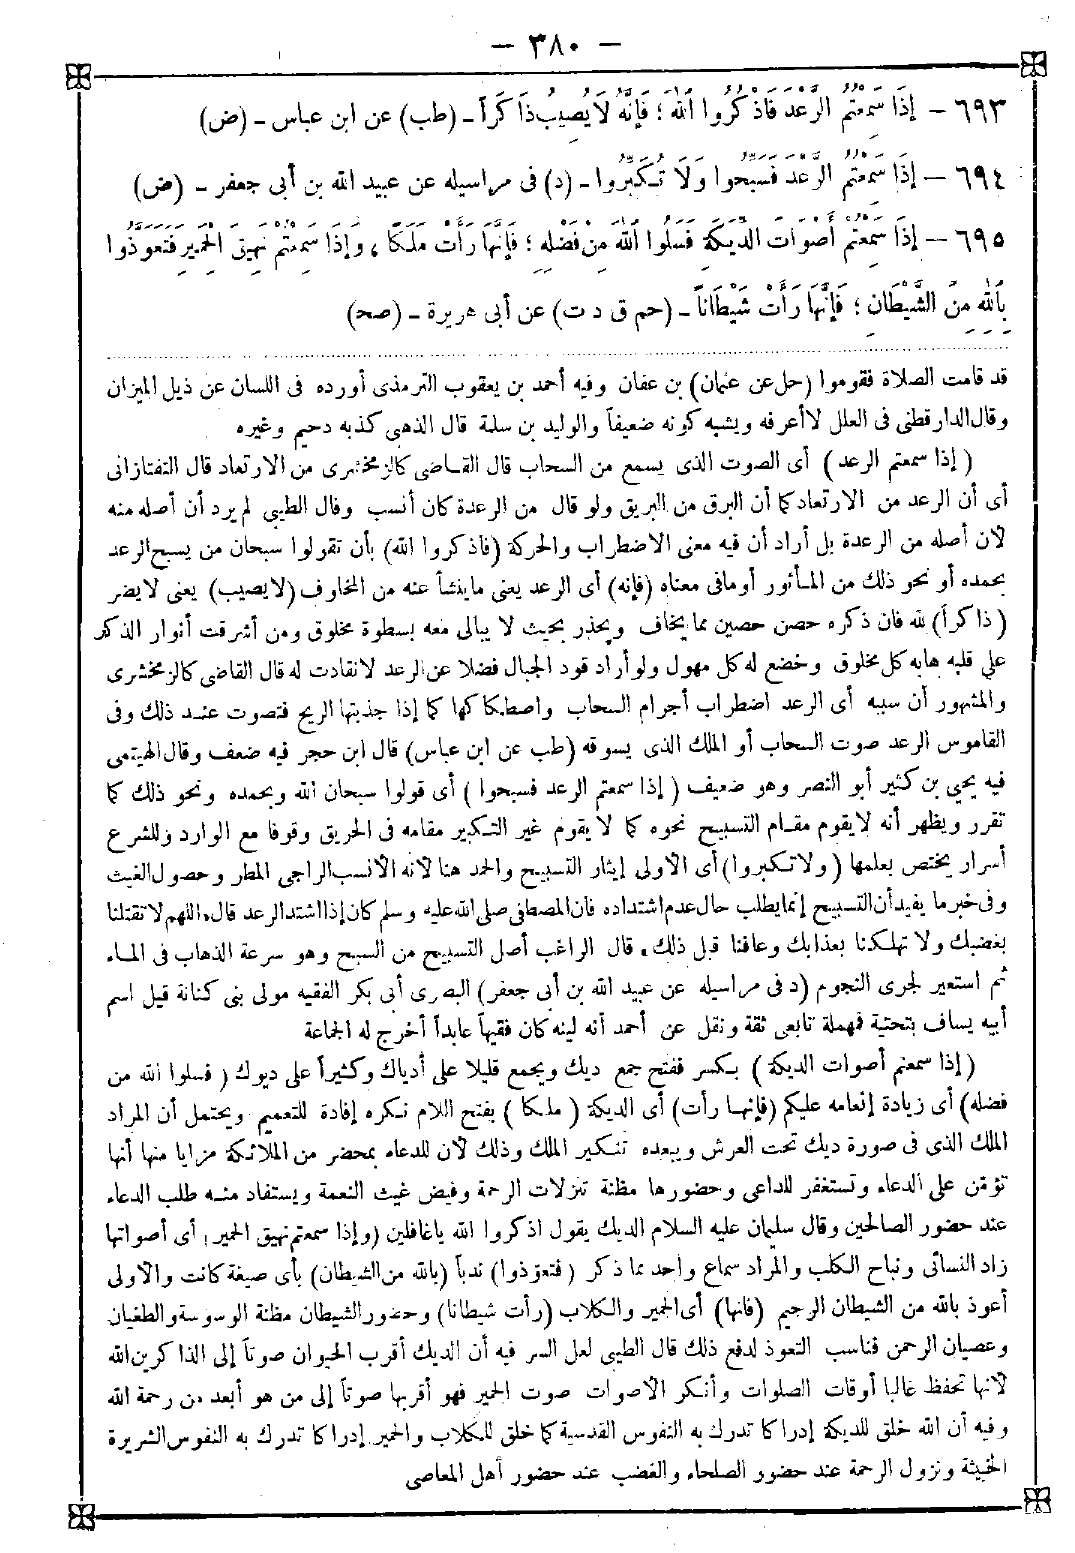 — ٣٨٠ —
٦٩٣ – إِذَا سَمِعْتُمُ الرَّعْدَ فَاذْكُرُوا اللهَ؛ فَإِنَّهُ لَا يُصِيبُ ذَاكِرًا – (طب) عن ابن عباس – (ض)
٦٩٤ – إِذَا سَمِعْتُمُ الرَّعْدَ فَسَبِّحُوا وَلَا تُكَبِّرُوا – (د) فى مراسيله عن عبيد الله بن أبى جعفر – (ض)
٦٩٥ – إِذَا سَمِعْتُمْ أَصْوَاتَ الدِّيَكَةِ فَسَلُوا اللهَ مِنْ فَضْلِهِ؛ فَإِنَّهَا رَأَتْ مَلَكًا، وَإِذَا سَمِعْتُمْ نَهِيقَ الْحَمِيرِ فَتَعَوَّذُوا
بِاللهِ مِنَ الشَّيْطَانِ؛ فَإِنَّهَا رَأَتْ شَيْطَاناً – (حم ق د ت) عن أبى هريرة – (صح)
قد قامت الصلاة فقوموا (حل عن عثمان) بن عفان وفيه أحمد بن يعقوب الترمذى أورده فى اللسان عن ذيل الميزان
وقال الدارقطنى فى العلل لا أعرفه ويشبه كونه ضعيفاً والوليد بن سلمة قال الذهبى كذبه دحيم وغيره
(إذا سمعتم الرعد) أى الصوت الذى يسمع من السحاب قال القاضى كالزمخشرى من الارتعاد قال التفتازانى
أى أن الرعد من الارتعاد كما أن البرق من البريق ولو قال من الرعدة كان أنسب وقال الطيبى لم يرد أن أصله منه
لأن أصله من الرعدة بل أراد أن فيه معنى الاضطراب والحركة (فاذكروا الله) بأن تقولوا سبحان من يسبح الرعد
بحمده أو نحو ذلك من المأثور أو ما فى معناه (فإنه) أى الرعد يعنى ما ينشأ عنه من المخاوف (لا يصيب) يعنى لا يضر
(ذاكراً) لله فان ذكره حصن حصين مما يخاف ويحذر بحيث لا يبالى معه بسطوة مخلوق ومن أشرقت أنوار الذكر
على قلبه هابه كل مخلوق وخضع له كل مهول ولو أراد قود الجبال فضلا عن الرعد لانقادت له قال القاضى كالزمخشرى
والمشهور أن سببه أى الرعد اضطراب أجرام السحاب واصطكاكها كما إذا جذبتها الريح فتصوت عند ذلك وفى
القاموس الرعد صوت السحاب أو الملك الذى يسوقه (طب عن ابن عباس) قال ابن حجر فيه ضعف وقال الهيتمى
فيه يحيى بن كثير أبو النصر وهو ضعيف (إذا سمعتم الرعد فسبحوا) أى قولوا سبحان الله وبحمده ونحو ذلك كما
تقرر ويظهر أنه لا يقوم مقام التسبيح نحوه كما لا يقوم غير التكبير مقامه فى الحريق وقوفا مع الوارد وللشرع
أسرار يختص بعلمها (ولا تكبروا) أى الأولى إيثار التسبيح والحمد هنا لأنه الأنسب الراجى المطر وحصول الغيث
وفى خبر ما يفيد أن التسبيح إنما يطلب حال عدم اشتداده فان المصطفى صلى الله عليه وسلم كان إذا اشتد الرعد قال، اللهم لا تقتلنا
بغضبك ولا تهلكنا بعذابك وعافنا قبل ذلك، قال الراغب أصل التسبيح من السبح وهو سرعة الذهاب فى الماء
ثم استعير لجرى النجوم (د فى مراسيله عن عبيد الله بن أبى جعفر) البصرى أبى بكر الفقيه مولى بنى كنانة قيل اسم
أبيه يساف بتحتية فمهملة تابعى ثقة ونقل عن أحمد أنه لينه كان فقيهاً عابداً أخرج له الجماعة
(إذا سمعتم أصوات الديكة) بكسر ففتح جمع ديك ويجمع قليلا على أدياك وكثيراً على ديوك (فسلوا الله من
فضله) أى زيادة إنعامه عليكم (فإنها رأت) أى الديكة (ملكا) بفتح اللام نكره إفادة للتعميم ويحتمل أن المراد
الملك الذى فى صورة ديك تحت العرش ويبعده تنكير الملك وذلك لأن للدعاء بمحضر من الملائكة مزايا منها أنها
تؤمن على الدعاء وتستغفر للداعى وحضورها مظنة تنزلات الرحمة وفيض غيث النعمة ويستفاد منه طلب الدعاء
عند حضور الصالحين وقال سليمان عليه السلام الديك يقول اذكروا الله ياغافلين (وإذا سمعتم نهيق الحمير) أى أصواتها
زاد النسائى ونباح الكلب والمراد سماع واحد مما ذكر (فتعوذوا) ندباً (بالله من الشيطان) بأى صيغة كانت والأولى
أعوذ بالله من الشيطان الرجيم (فانها) أى الحمير والكلاب (رأت شيطانا) وحضور الشيطان مظنة الوسوسة والطغيان
وعصيان الرحمن فناسب التعوذ لدفع ذلك قال الطيبى لعل السر فيه أن الديك أقرب الحيوان صوتاً إلى الذاكرين الله
لأنها تحفظ غالبا أوقات الصلوات وأنكر الأصوات صوت الحمير فهو أقربها صوتاً إلى من هو أبعد من رحمة الله
وفيه أن الله خلق للديكة إدراكا تدرك به النفوس القدسية كما خلق للكلاب والحمير إدراكا تدرك به النفوس الشريرة
الخبيثة ونزول الرحمة عند حضور الصلحاء والغضب عند حضور أهل المعاصى